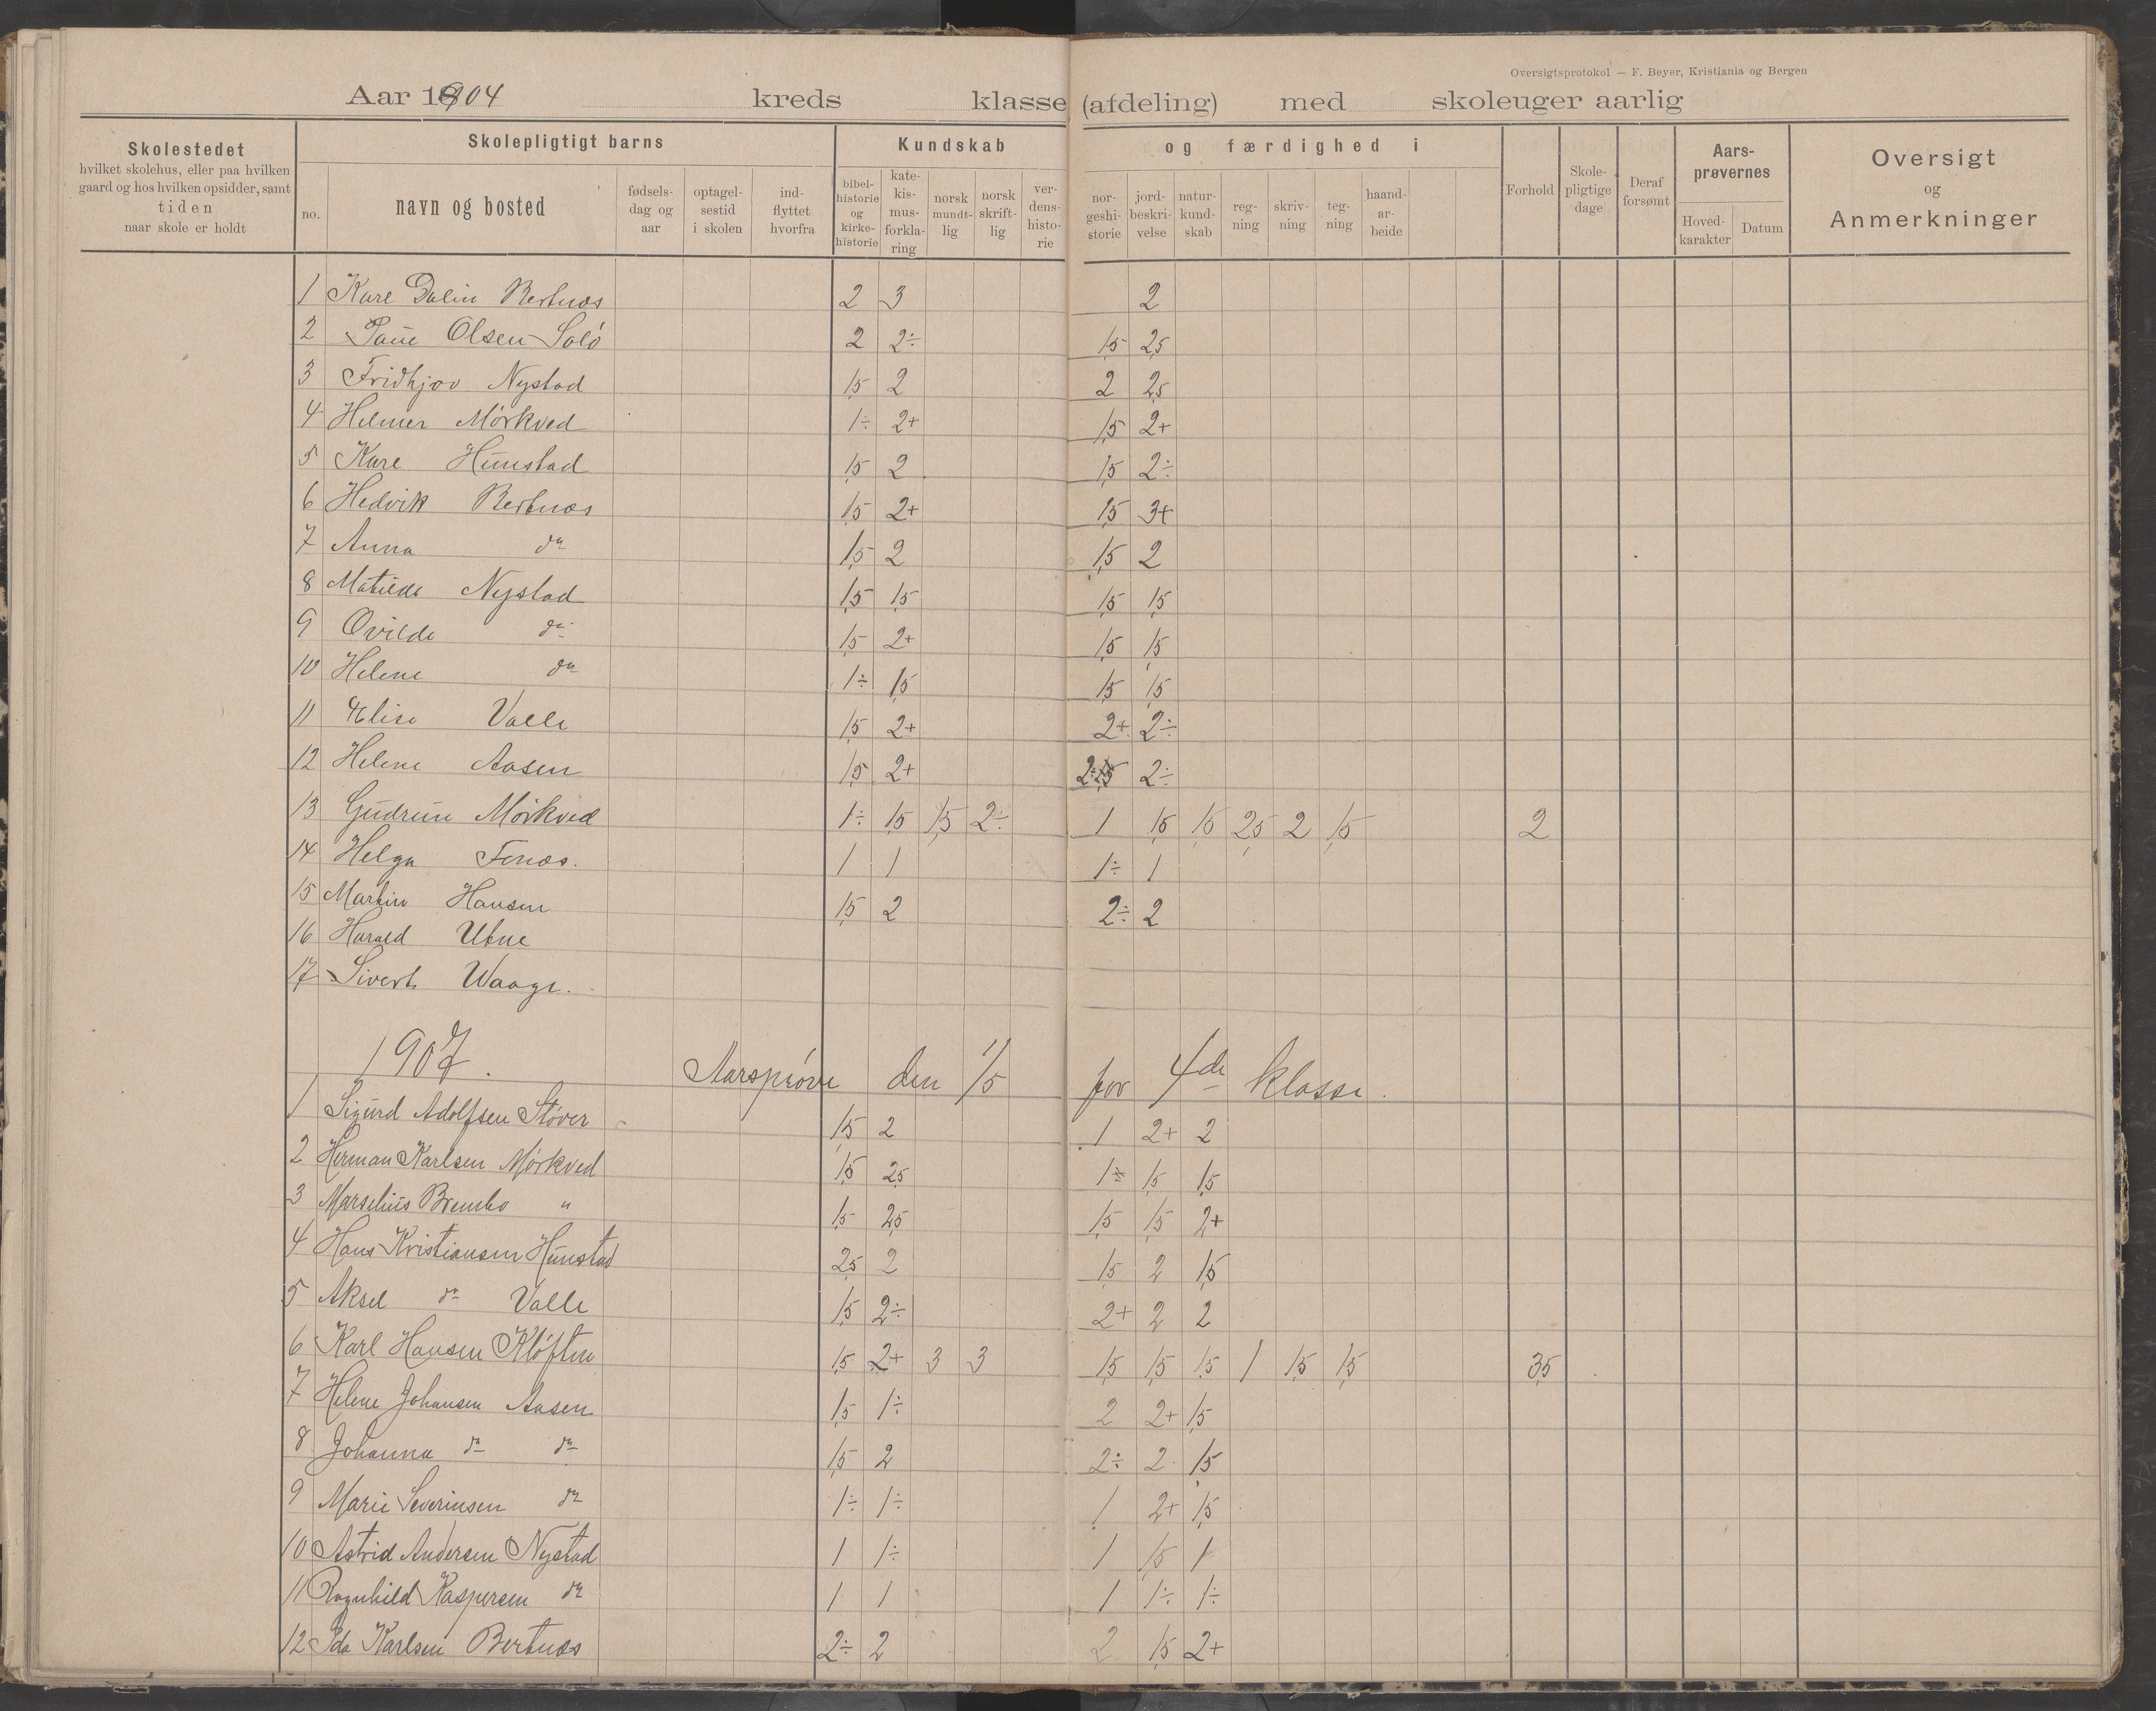 Oversigtsprotokol — F. Beyer, Kristiania og Bergen
Aar 1904 kreds klasse (afdeling) med skoleuger aarlig
Skolestedet hvilket skolehus, eller paa hvilken gaard og hos hvilken opsidder, samt tiden naar skole er holdt
Skolepligtigt barns
no. navn og bosted fødsels- dag og aar optagel- sestid i skolen ind- flyttet hvorfra
Kundskab og færdighed i
bibel- historie og kirke- historie kate- kis- mus- forkla- ring norsk mundt- lig norsk skrift- lig ver- dens- histo- rie nor- geshi- storie jord- beskri- velse natur- kund- skab reg- ning skriv- ning teg- ning haand- ar- beide
Forhold Skole- pligtige dage Deraf forsømt
Aars- prøvernes Hoved- karakter Datum
Oversigt og Anmerkninger
1 Kare Dalin Bertnæs 2 3 2
2 Olsen 2 2÷ 1,5 2,5
3 Fridhjov Nystad 1,5 2 2 2,5
4 Helmer Mörkved 1÷ 2+ 1,5 2+
5 Kare Hunstad 1,5 2 1,5 2÷
6 Hedvik Bertnæs 1,5 2+ 1,5 3+
7 Anna do 1,5 2 1,5 2
8 Matilde Nystad 1,5 1,5 1,5 1,5
9 Ovilde do 1,5 2+ 1,5 1,5
10 Helene do 1÷ 1,5 1,5 1,5
11 Elise Valle 1,5 2+ 2+ 2÷
12 Helene Aasen 1,5 2+ 2÷ 2÷
13 Gudrun Mörkved 1÷ 1,5 1,5 2÷ 1 1,5 1,5 2,5 2 1,5 2
14 Helga Fenæs. 1 1 1÷ 1
15 Martin Hansen 1,5 2 2÷ 2
16 Harald Utne
17 Sivert Waage.
1907. Aarspröve den 1/5 for 4de klasse.
1 Sigurd Adolfsen Støver 1,5 2 1 2+ 2
2 Herman Karlsen Mörkved 1,5 2,5 1÷ 1,5 1,5
3 Marselius Brembo " 1,5 2,5 1,5 1,5 2+
4 Hans Kristiansen Hunstad 2,5 2 1,5 2 1,5
5 Aksel do Valle 1,5 2÷ 2+ 2 2
6 Karl Hansen Klöften 1,5 2+ 3 3 1,5 1,5 1,5 1 1,5 1,5 3,5
7 Helene Johansen Aasen 1,5 1÷ 2 2+ 1,5
8 Johanna do do 1,5 2 2÷ 2 1,5
9 Marie Severinsen do 1÷ 1÷ 1 2+ 1,5
10 Astrid Andersen Nystad 1 1÷ 1 1,5 1
11 Ragnhild Kaspersen do 1 1 1 1÷ 1÷
12 Ida Karlsen Bertnæs 2÷ 2 2 1,5 2+